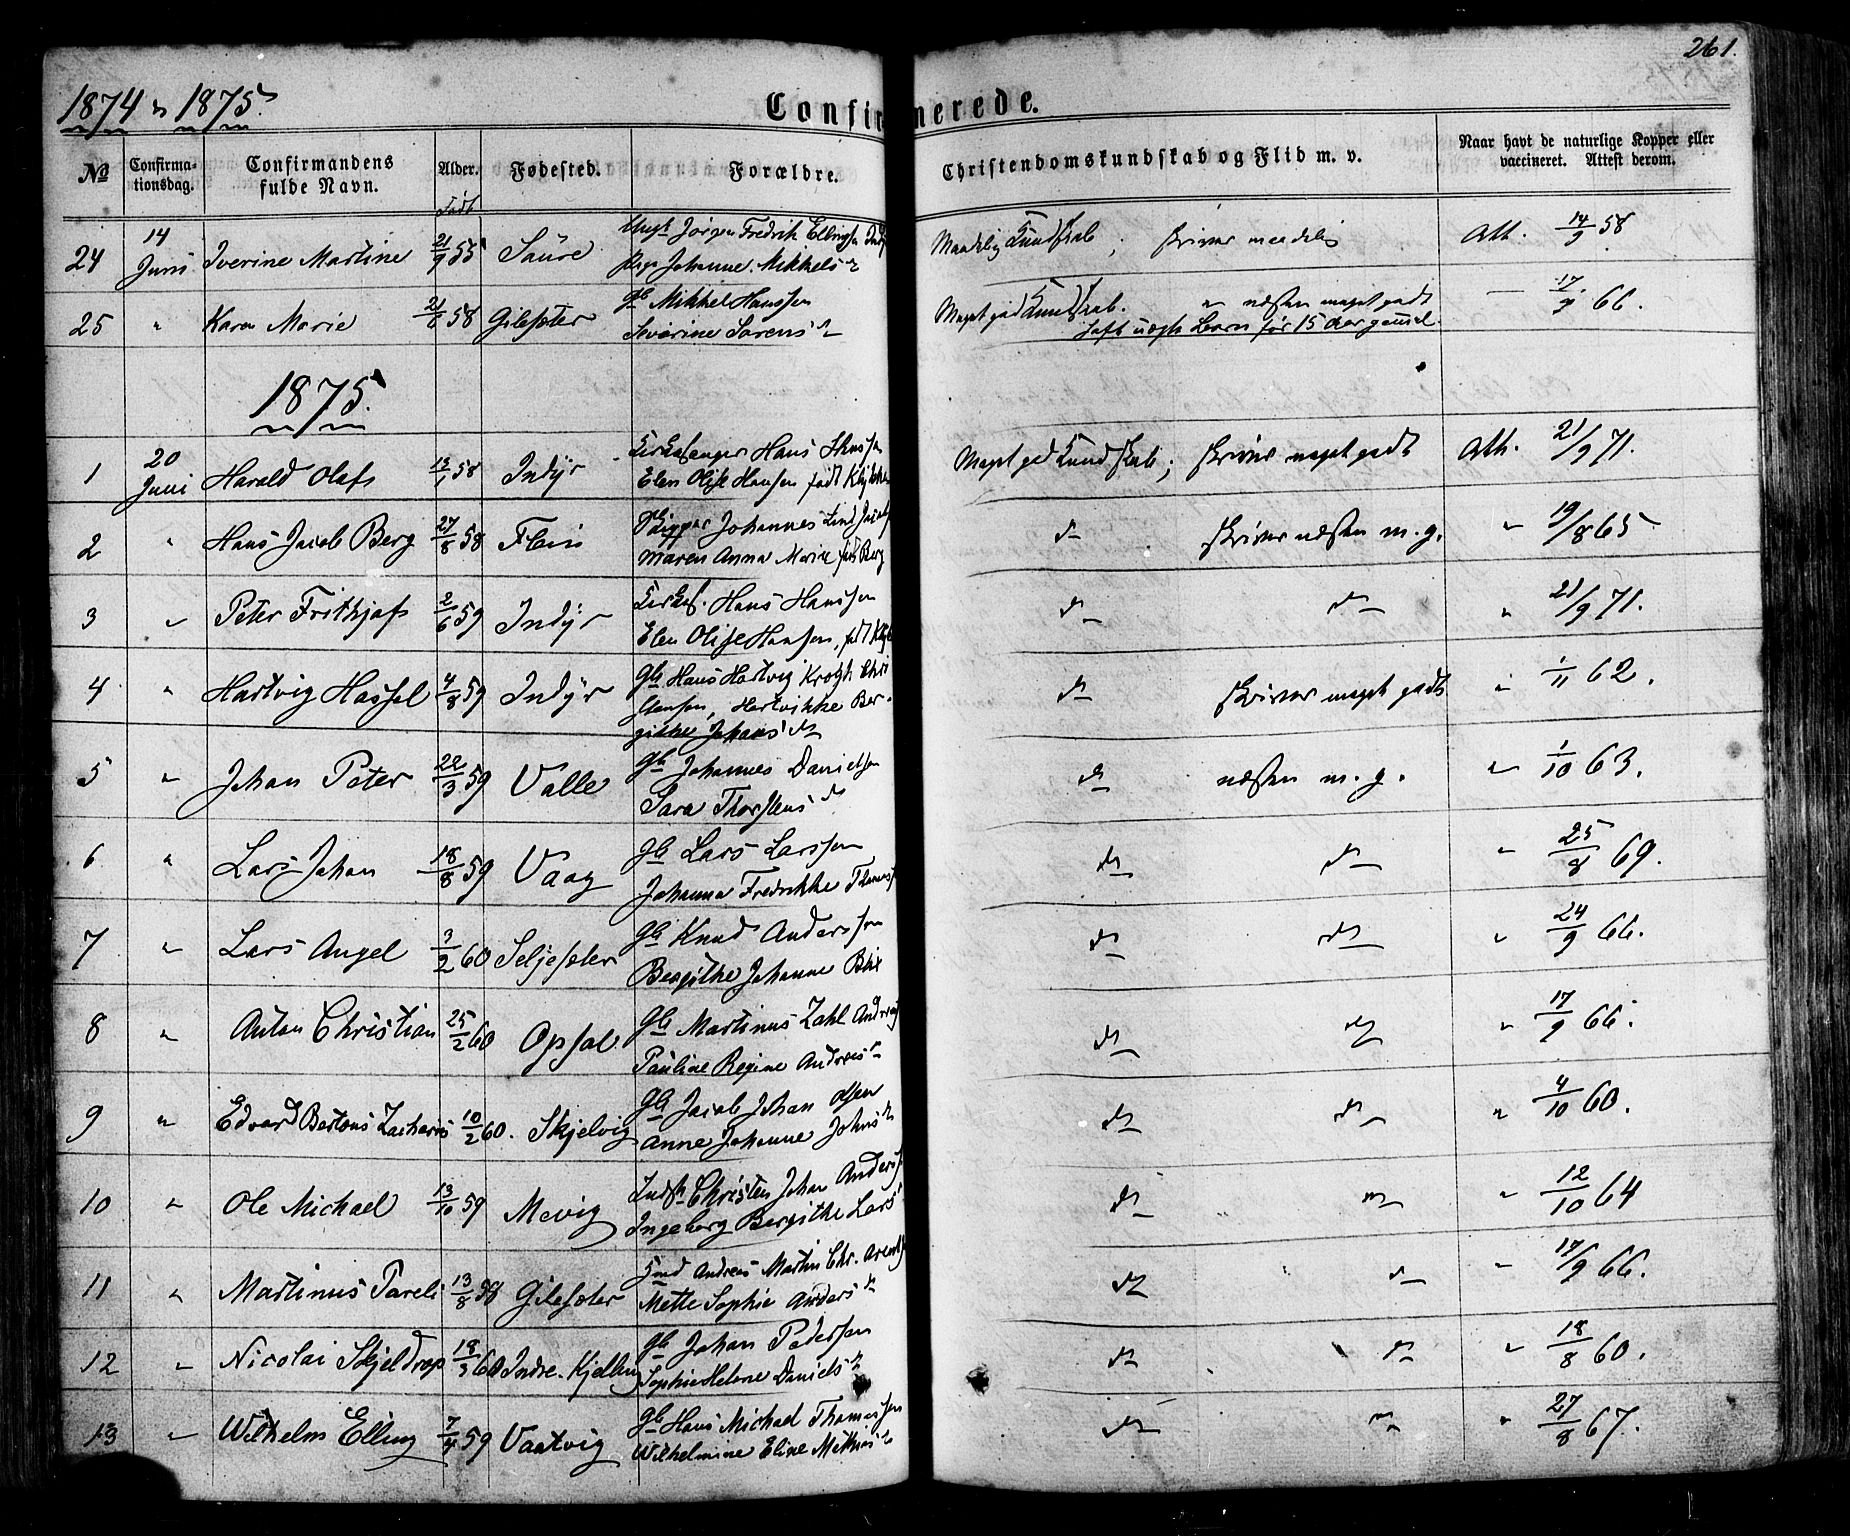 261.
1874 & 1875.
Confirmerede.
No
Confirmationsdag.
Confirmandens fulde Navn.
Alder.
Fødested.
Forældre.
Christendomskundskab og Flid m. v.
Naar havt de naturlige Kopper eller vaccineret. Attest derom.
Født
24 14 Juni Iverine Martine 21/9 55 Saure Jørgen Fredrik Johanne Mikkelsd. Maadelig Kundskab; skriver maadelig Att. 14/9 58.
25 " Karen Marie 58 Gilesæter Gb Mikkel Hanssen Severine Sørensd. Meget god Kundskab. næsten meget godt 66.
1875.
1 20 Juni Harald Olaf 13/1 58 Indyr Kirkesanger Hans Hanssen Elen Olise Hansen født Meget god Kundskab; skriver meget godt Att. 21/9 71.
2 " Hans Jacob Berg 27/8 58 Flein Skipper Johannes Lind Maren Anna Marie født Berg do skriver næsten m. g. " 19/8 65
3 " Peter Frithjof 2/6 59 Indyr Kirkes. Hans Hanssen Elen Olise Hansen, født do do " 21/9 71.
4 " Hartvig Hassel 4/8 59 Indyr Gb Hans Hartvig Krogh Christensen, Hartvikke Bergitthe Johansd. do skriver meget godt " 1/11 62.
5 " Johan Peter 22/3 59 Valle Gb Johannes Danielsen Sara Thorstensd. do næsten m. g. " 1/10 63.
6 " Lars Johan 18/8 59 Vaag Gb Lars Larssen Johanna Fredrikke do do " 25/8 69.
7 " Lars Angel 3/2 60 Seljesæter Gb Knud Anderssen Bergithe Johanne Blix do do " 24/9 66.
8 " Anton Christian 25/2 60 Opsal Gb Martinus Zahl Pauline Regine Andreasd. do do " 17/9 66.
9 " Edvard Bertous Zacharis 10/2 60. Skjelvig Gb Jacob Johan Olsen Anne Johanne Johnsd. do do " 4/10 60.
10 " Ole Michael 13/10 59 Mevig Inds. Christen Johan Anderss. Ingeborg Bergithe Lars do do " 12/10 64
11 " Martinus Pareli 13/8 58 Gilesæter Andreas Martin Chr. Mette Sophie Andersd. do do " 17/9 66.
12 " Nicolai Skjeldrop 18/3 60 Indre. Kjelling Gb Johan Pedersen Sophie Helene Danielsd. do do " 18/8 60.
13 " Wilhelm Elling 7/4 59 Vaatvig Gb Hans Michael Thomassen Wilhelmine Eline do do " 27/8 67.